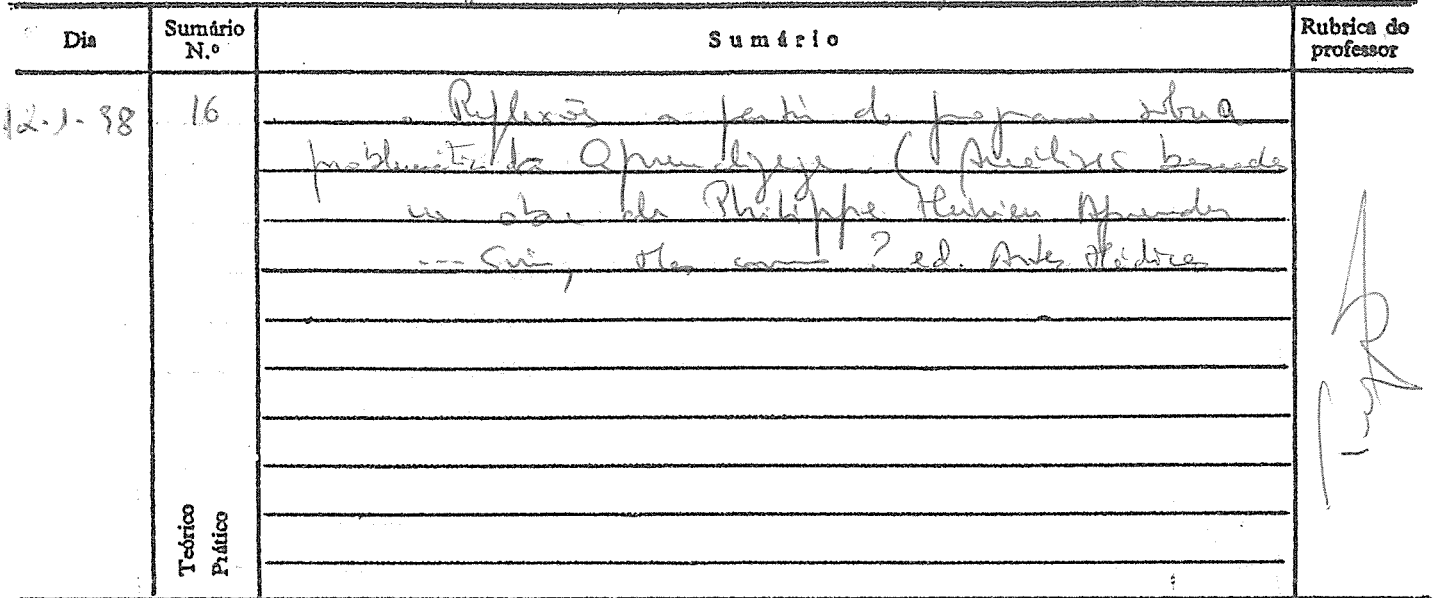 Dia Sumário N.º Sumário Rubrica do professor
12-1-98 16 . Reflexões a partir do programa sobre a
problemática da Aprendizagem (Análise baseada
na obra de Philippe Meirieu Aprender
--- Sim, Mas como? ed. Artes Médicas
Teórico
Prático